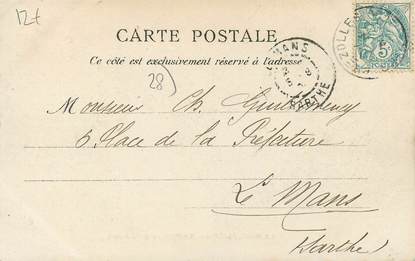 12+
CARTE POSTALE
Ce côté est exclusivement réservé à l'adresse
28
5
MANS
SARTHE
Monsieur Ch.
6 Place de la Préfecture
Le Mans
Sarthe